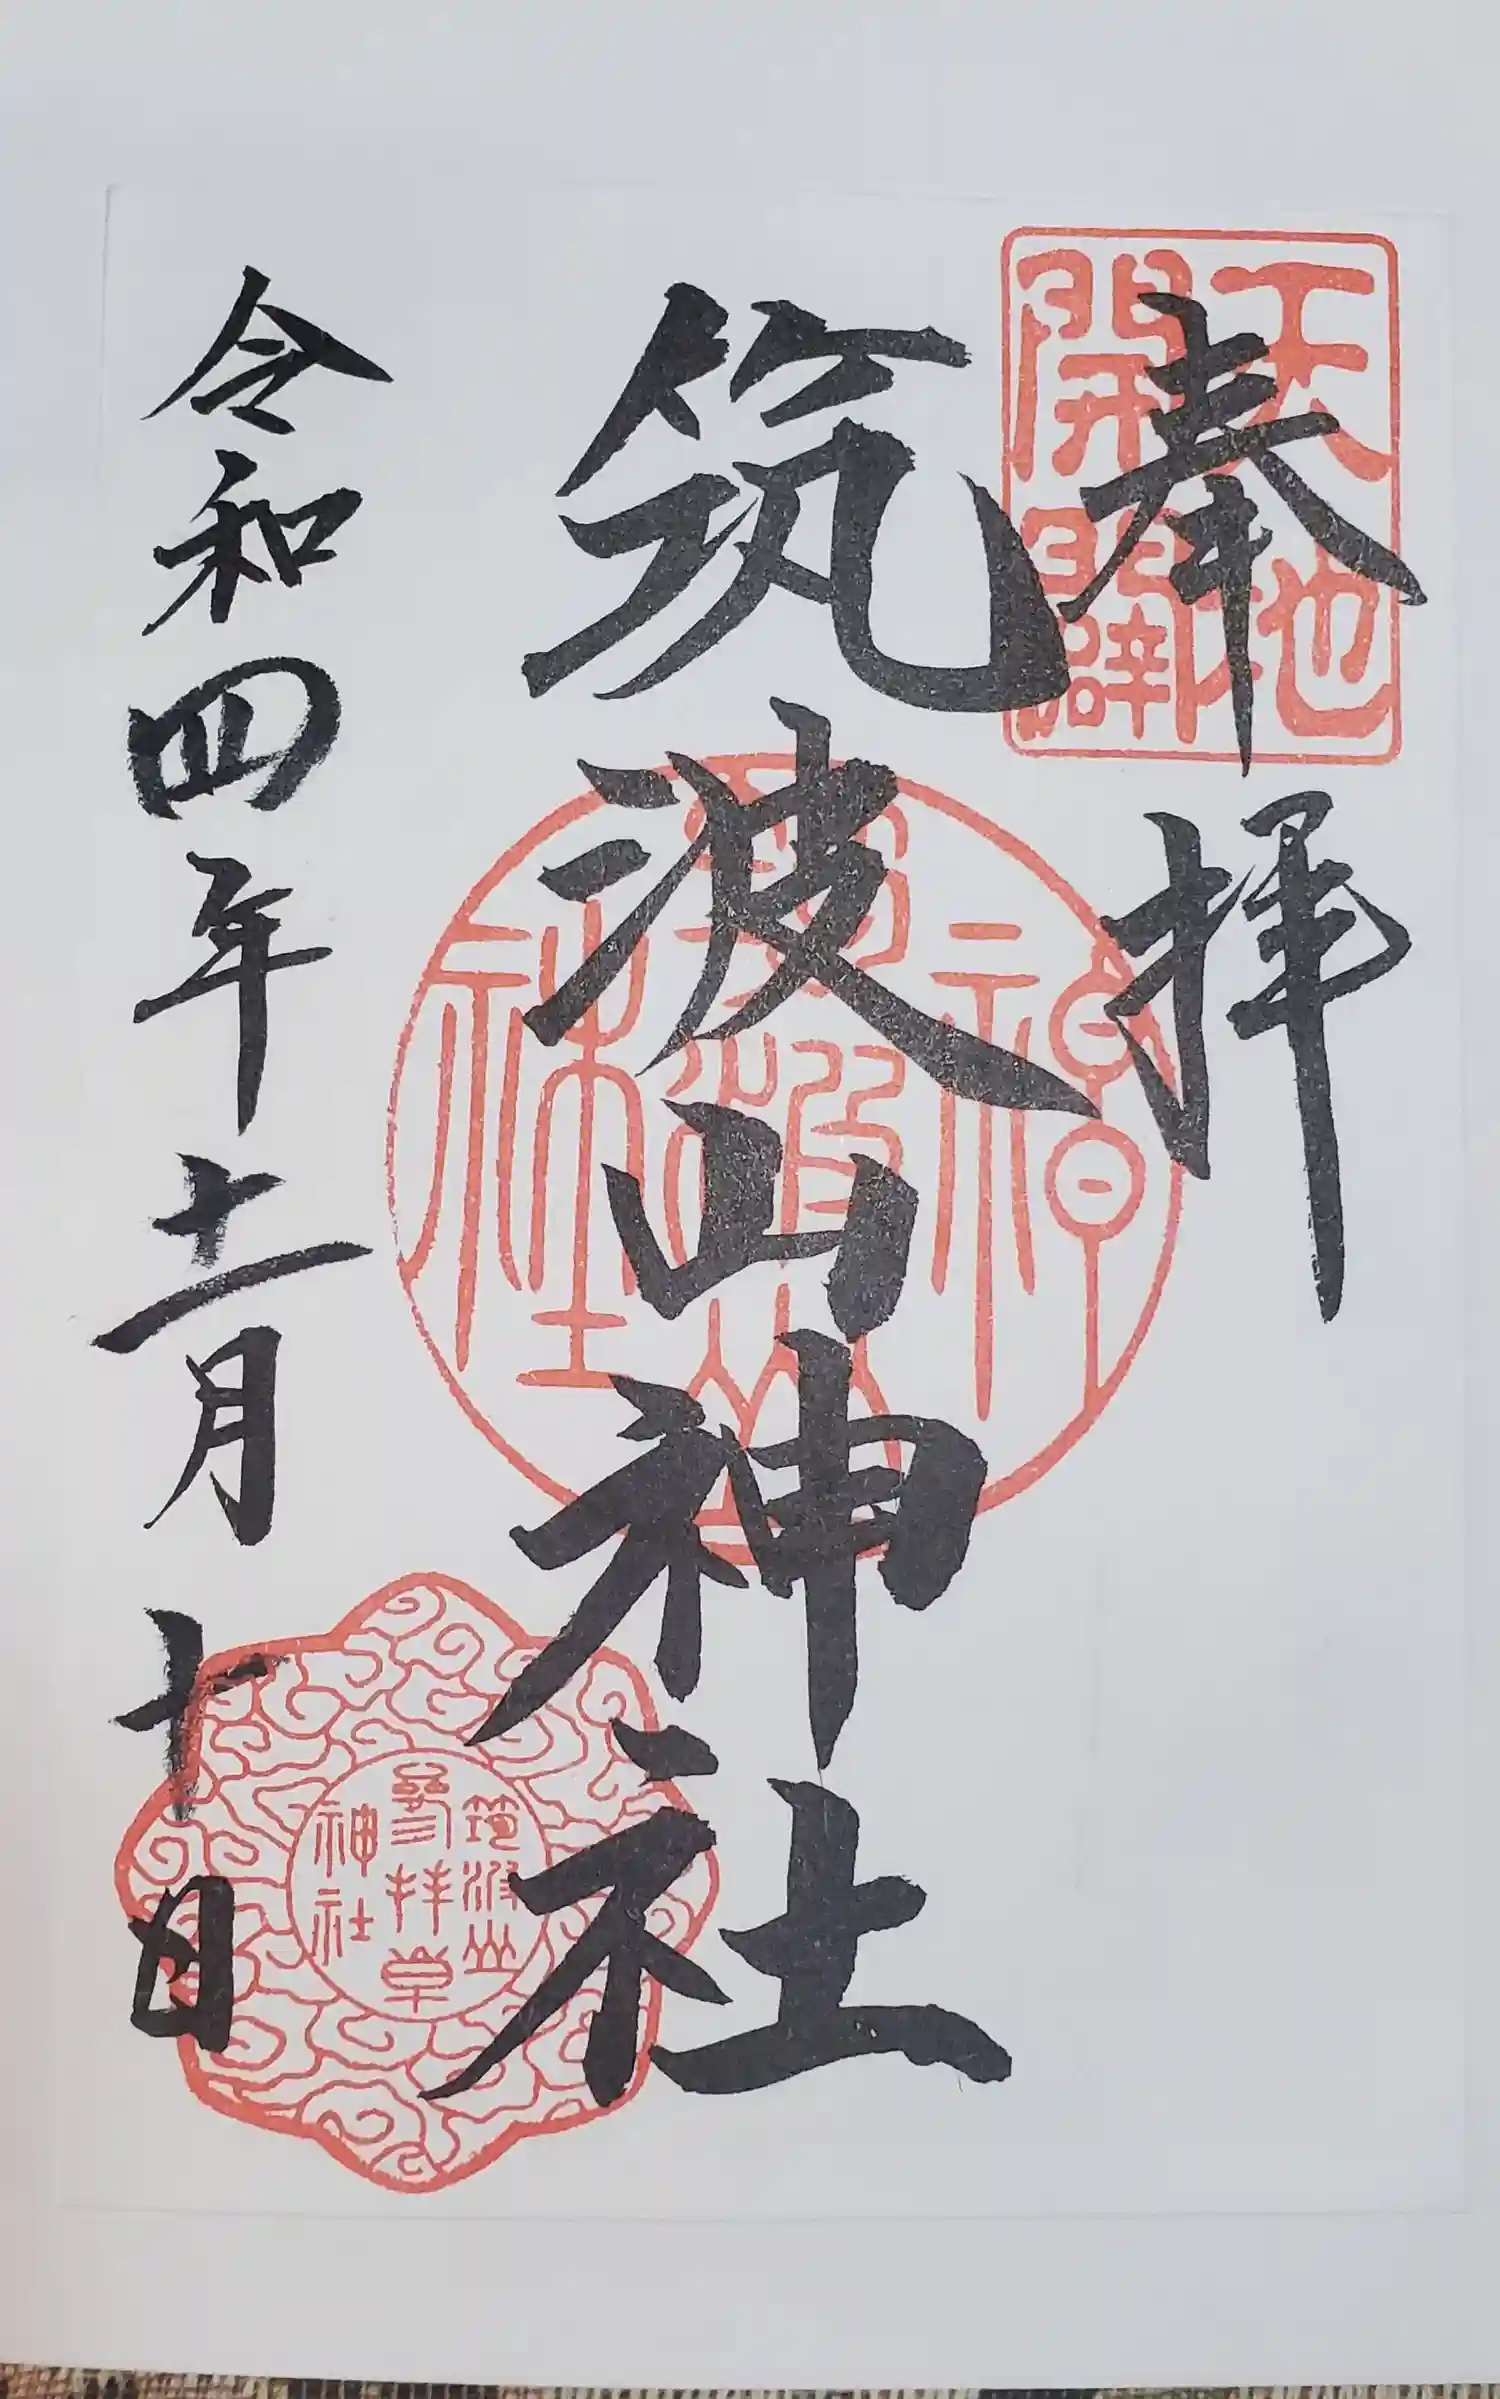 奉拝
天地
開闢
筑波山神社
筑波山
参拝章
神社
令和四年十一月十日